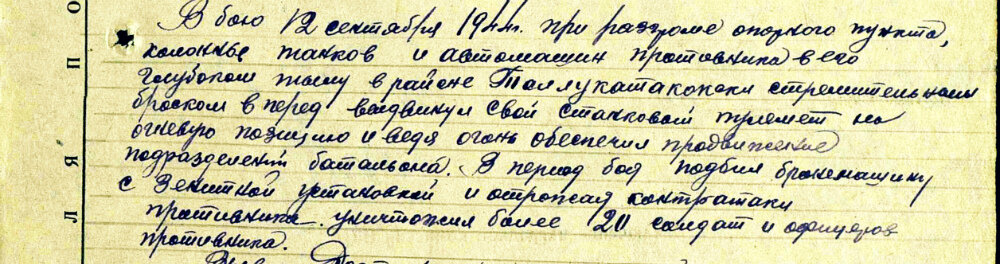 В бою 12 сентября 1944г. при разгроме опорного пункта,
колонные танков и автомашин противника в его
глубоком тылу в районе стремительным
броском вперед выдвинул свой станковый пулемет на
огневую позицию и ведя огонь обеспечил продвижение
подразделений баталькона. В период боя подбил бронемашину
с зенитной установкой и отрожая контратаки
противника уничтожил более 20 солдат и офицеров
противника.
П
О
Л
Я